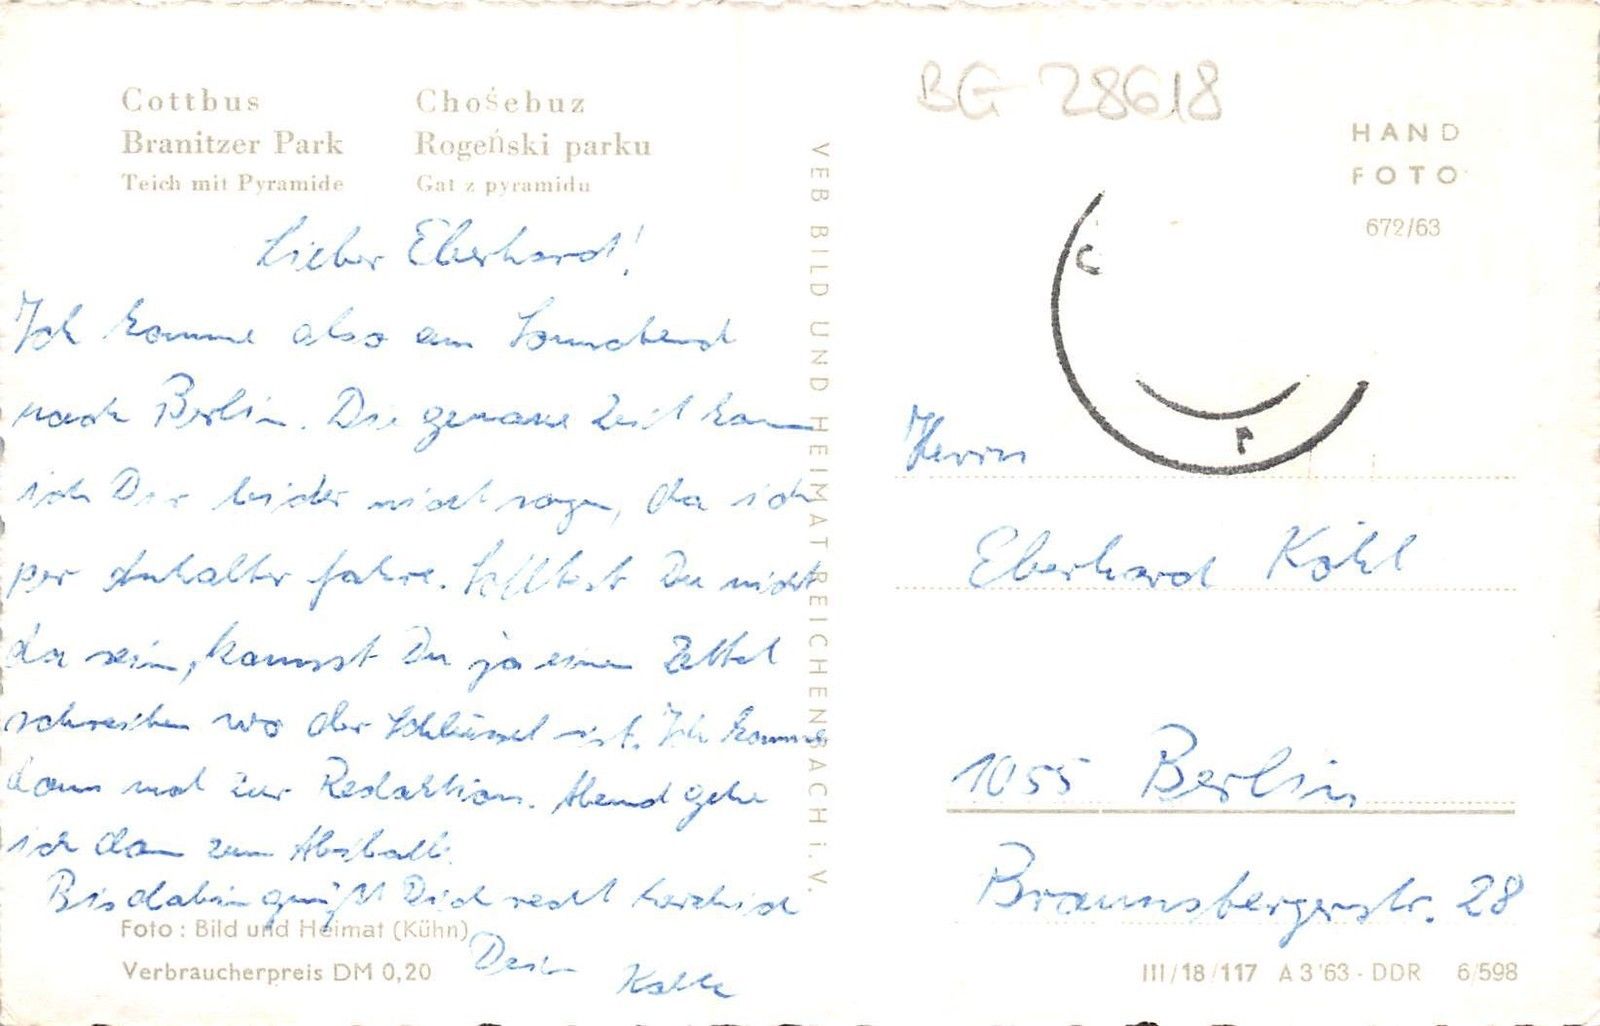 Cottbus
Branitzer Park
Teich mit Pyramide
Chośebuz
Rogeński parku
Gat z pyramidu
Lieber Eberhard!
Ich komme also am Sonnabend
nach Berlin. Die genaue Zeit kann
ich Dir leider nicht sagen, da ich
per Anhalter fahre. Solltest Du nicht
da sein, kannst Du ja einen Zettel
schreiben wo der Schlüssel ist. Ich komme
dann mal zur Redaktion. Abend gehe
ich dann zum
Bis dahin grüßt Dich recht herzlich
Dein Kalle
Foto: Bild und Heimat (Kühn)
Verbraucherpreis DM 0,20
VEB BILD UND HEIMAT REICHENBACH i. V.
BG 28618
HAND
FOTO
672/63
Herrn
Eberhard Köhl
1055 Berlin
Braunsbergerstr. 28
III/18/117 A 3'63 - DDR 6/598